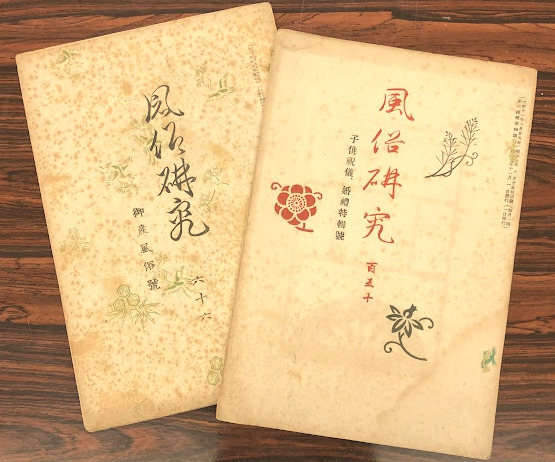 風俗研究
御産風俗號
六十六
風俗研究
子供祝儀、婚禮特輯號
百五十